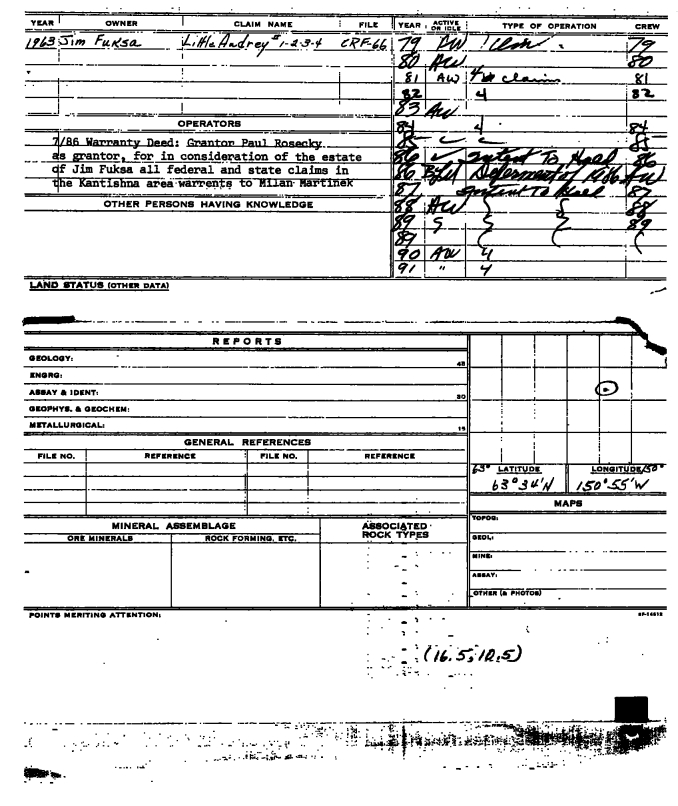 YEAR OWNER CLAIM NAME FILE YEAR ACTIVE OR IDLE TYPE OF OPERATION CREW
1963 Jim Fuksa Little Audrey #1-2-3-4 CRF-66 79 AW 79
80 AW 80
81 AW 4 claims 81
82 4 82
83 AW
OPERATORS
84 4 84
7/86 Warranty Deed: Grantor Paul Rosecky
as grantor, for in consideration of the estate
of Jim Fuksa all federal and state claims in
the Kantishna area warrents to Milan Martinek
86 ✓ Intent To Hold 86
86 Deferment of
87 Intent To Hold 87
OTHER PERSONS HAVING KNOWLEDGE
88 AW 88
89 89
89
90 AW 4
91 " 4
LAND STATUS (OTHER DATA)
REPORTS
GEOLOGY: 45
ENGRG:
ASSAY & IDENT: 30
GEOPHYS. & GEOCHEM:
METALLURGICAL: 15
GENERAL REFERENCES
FILE NO. REFERENCE FILE NO. REFERENCE
63° LATITUDE LONGITUDE 150°
63°34'N 150°55'W
MAPS
MINERAL ASSEMBLAGE
ORE MINERALS ROCK FORMING, ETC.
ASSOCIATED ROCK TYPES
TOPOG:
GEOL:
MINE:
ASSAY:
OTHER (& PHOTOS)
POINTS MERITING ATTENTION:
(16.5, 12.5)